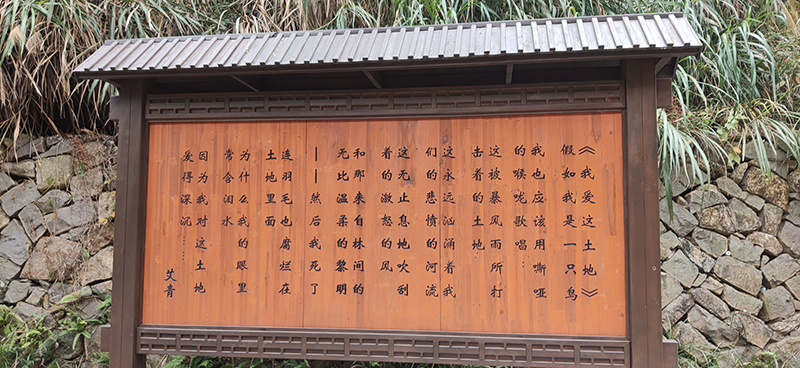 《我爱这土地》
假如我是一只鸟
我也应该用嘶哑
的喉咙歌唱
这被暴风雨所打
击着的土地
这永远汹涌着我
们的悲愤的河流
这无止息地吹刮
着的激怒的风
和那来自林间的
无比温柔的黎明
——然后我死了
连羽毛也腐烂在
土地里面
为什么我的眼里
常含泪水
因为我对这土地
爱得深沉……
艾青